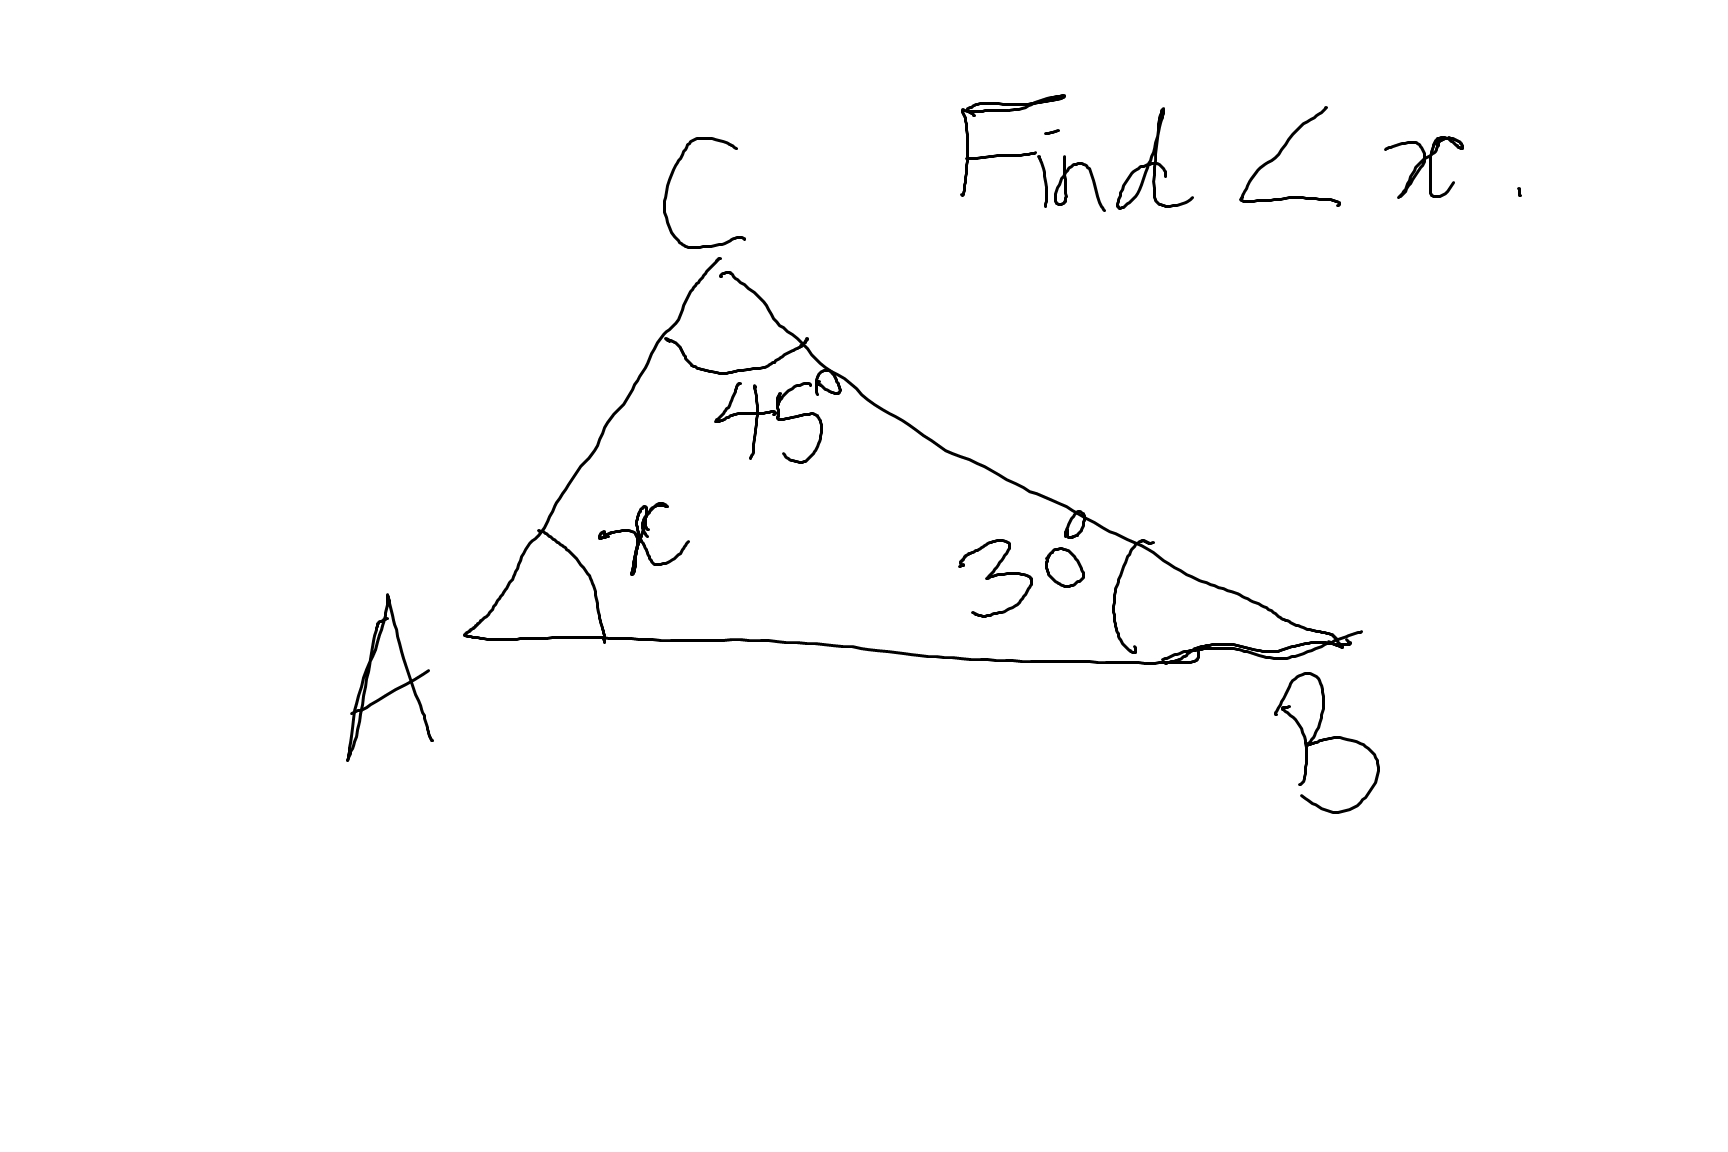 Find ∠x.
C
45°
x
30°
A
B